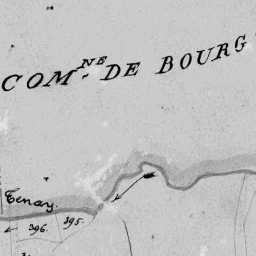 COM.NE DE BOURG
Tenay.
396.
395.